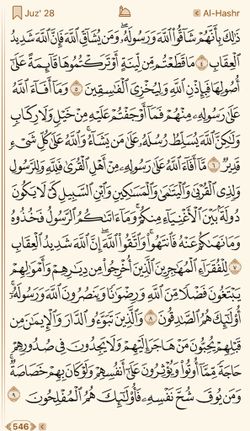 Juz' 28
Al-Hashr
ذَٰلِكَ بِأَنَّهُمْ شَاقُّوا۟ ٱللَّهَ وَرَسُولَهُۥ وَمَن يُشَاقِّ ٱللَّهَ فَإِنَّ ٱللَّهَ شَدِيدُ
ٱلْعِقَابِ ٤ مَا قَطَعْتُم مِّن لِّينَةٍ أَوْ تَرَكْتُمُوهَا قَآئِمَةً عَلَىٰٓ
أُصُولِهَا فَبِإِذْنِ ٱللَّهِ وَلِيُخْزِىَ ٱلْفَـٰسِقِينَ ٥ وَمَآ أَفَآءَ ٱللَّهُ
عَلَىٰ رَسُولِهِۦ مِنْهُمْ فَمَآ أَوْجَفْتُمْ عَلَيْهِ مِنْ خَيْلٍ وَلَا رِكَابٍ
وَلَـٰكِنَّ ٱللَّهَ يُسَلِّطُ رُسُلَهُۥ عَلَىٰ مَن يَشَآءُ وَٱللَّهُ عَلَىٰ كُلِّ شَىْءٍ
قَدِيرٌ ٦ مَّآ أَفَآءَ ٱللَّهُ عَلَىٰ رَسُولِهِۦ مِنْ أَهْلِ ٱلْقُرَىٰ فَلِلَّهِ وَلِلرَّسُولِ
وَلِذِى ٱلْقُرْبَىٰ وَٱلْيَتَـٰمَىٰ وَٱلْمَسَـٰكِينِ وَٱبْنِ ٱلسَّبِيلِ كَىْ لَا يَكُونَ
دُولَةًۢ بَيْنَ ٱلْأَغْنِيَآءِ مِنكُمْ وَمَآ ءَاتَىٰكُمُ ٱلرَّسُولُ فَخُذُوهُ
وَمَا نَهَىٰكُمْ عَنْهُ فَٱنتَهُوا۟ وَٱتَّقُوا۟ ٱللَّهَ إِنَّ ٱللَّهَ شَدِيدُ ٱلْعِقَابِ
٧ لِلْفُقَرَآءِ ٱلْمُهَـٰجِرِينَ ٱلَّذِينَ أُخْرِجُوا۟ مِن دِيَـٰرِهِمْ وَأَمْوَٰلِهِمْ
يَبْتَغُونَ فَضْلًا مِّنَ ٱللَّهِ وَرِضْوَٰنًا وَيَنصُرُونَ ٱللَّهَ وَرَسُولَهُۥٓ
أُو۟لَـٰٓئِكَ هُمُ ٱلصَّـٰدِقُونَ ٨ وَٱلَّذِينَ تَبَوَّءُو ٱلدَّارَ وَٱلْإِيمَـٰنَ مِن
قَبْلِهِمْ يُحِبُّونَ مَنْ هَاجَرَ إِلَيْهِمْ وَلَا يَجِدُونَ فِى صُدُورِهِمْ
حَاجَةً مِّمَّآ أُوتُوا۟ وَيُؤْثِرُونَ عَلَىٰٓ أَنفُسِهِمْ وَلَوْ كَانَ بِهِمْ خَصَاصَةٌ
وَمَن يُوقَ شُحَّ نَفْسِهِۦ فَأُو۟لَـٰٓئِكَ هُمُ ٱلْمُفْلِحُونَ ٩
546